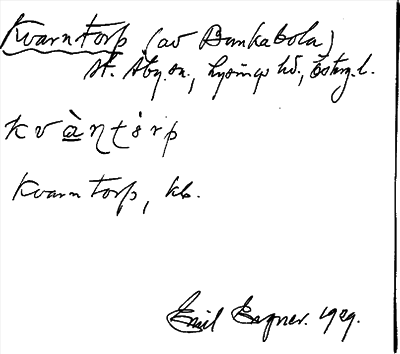 Kvarntorp (av Bankabola)
St. Åby sn., Lysings hd., Östergl.
kvàn̥tórp
Kvarntorp, kb.
Emil Eagner. 1929.